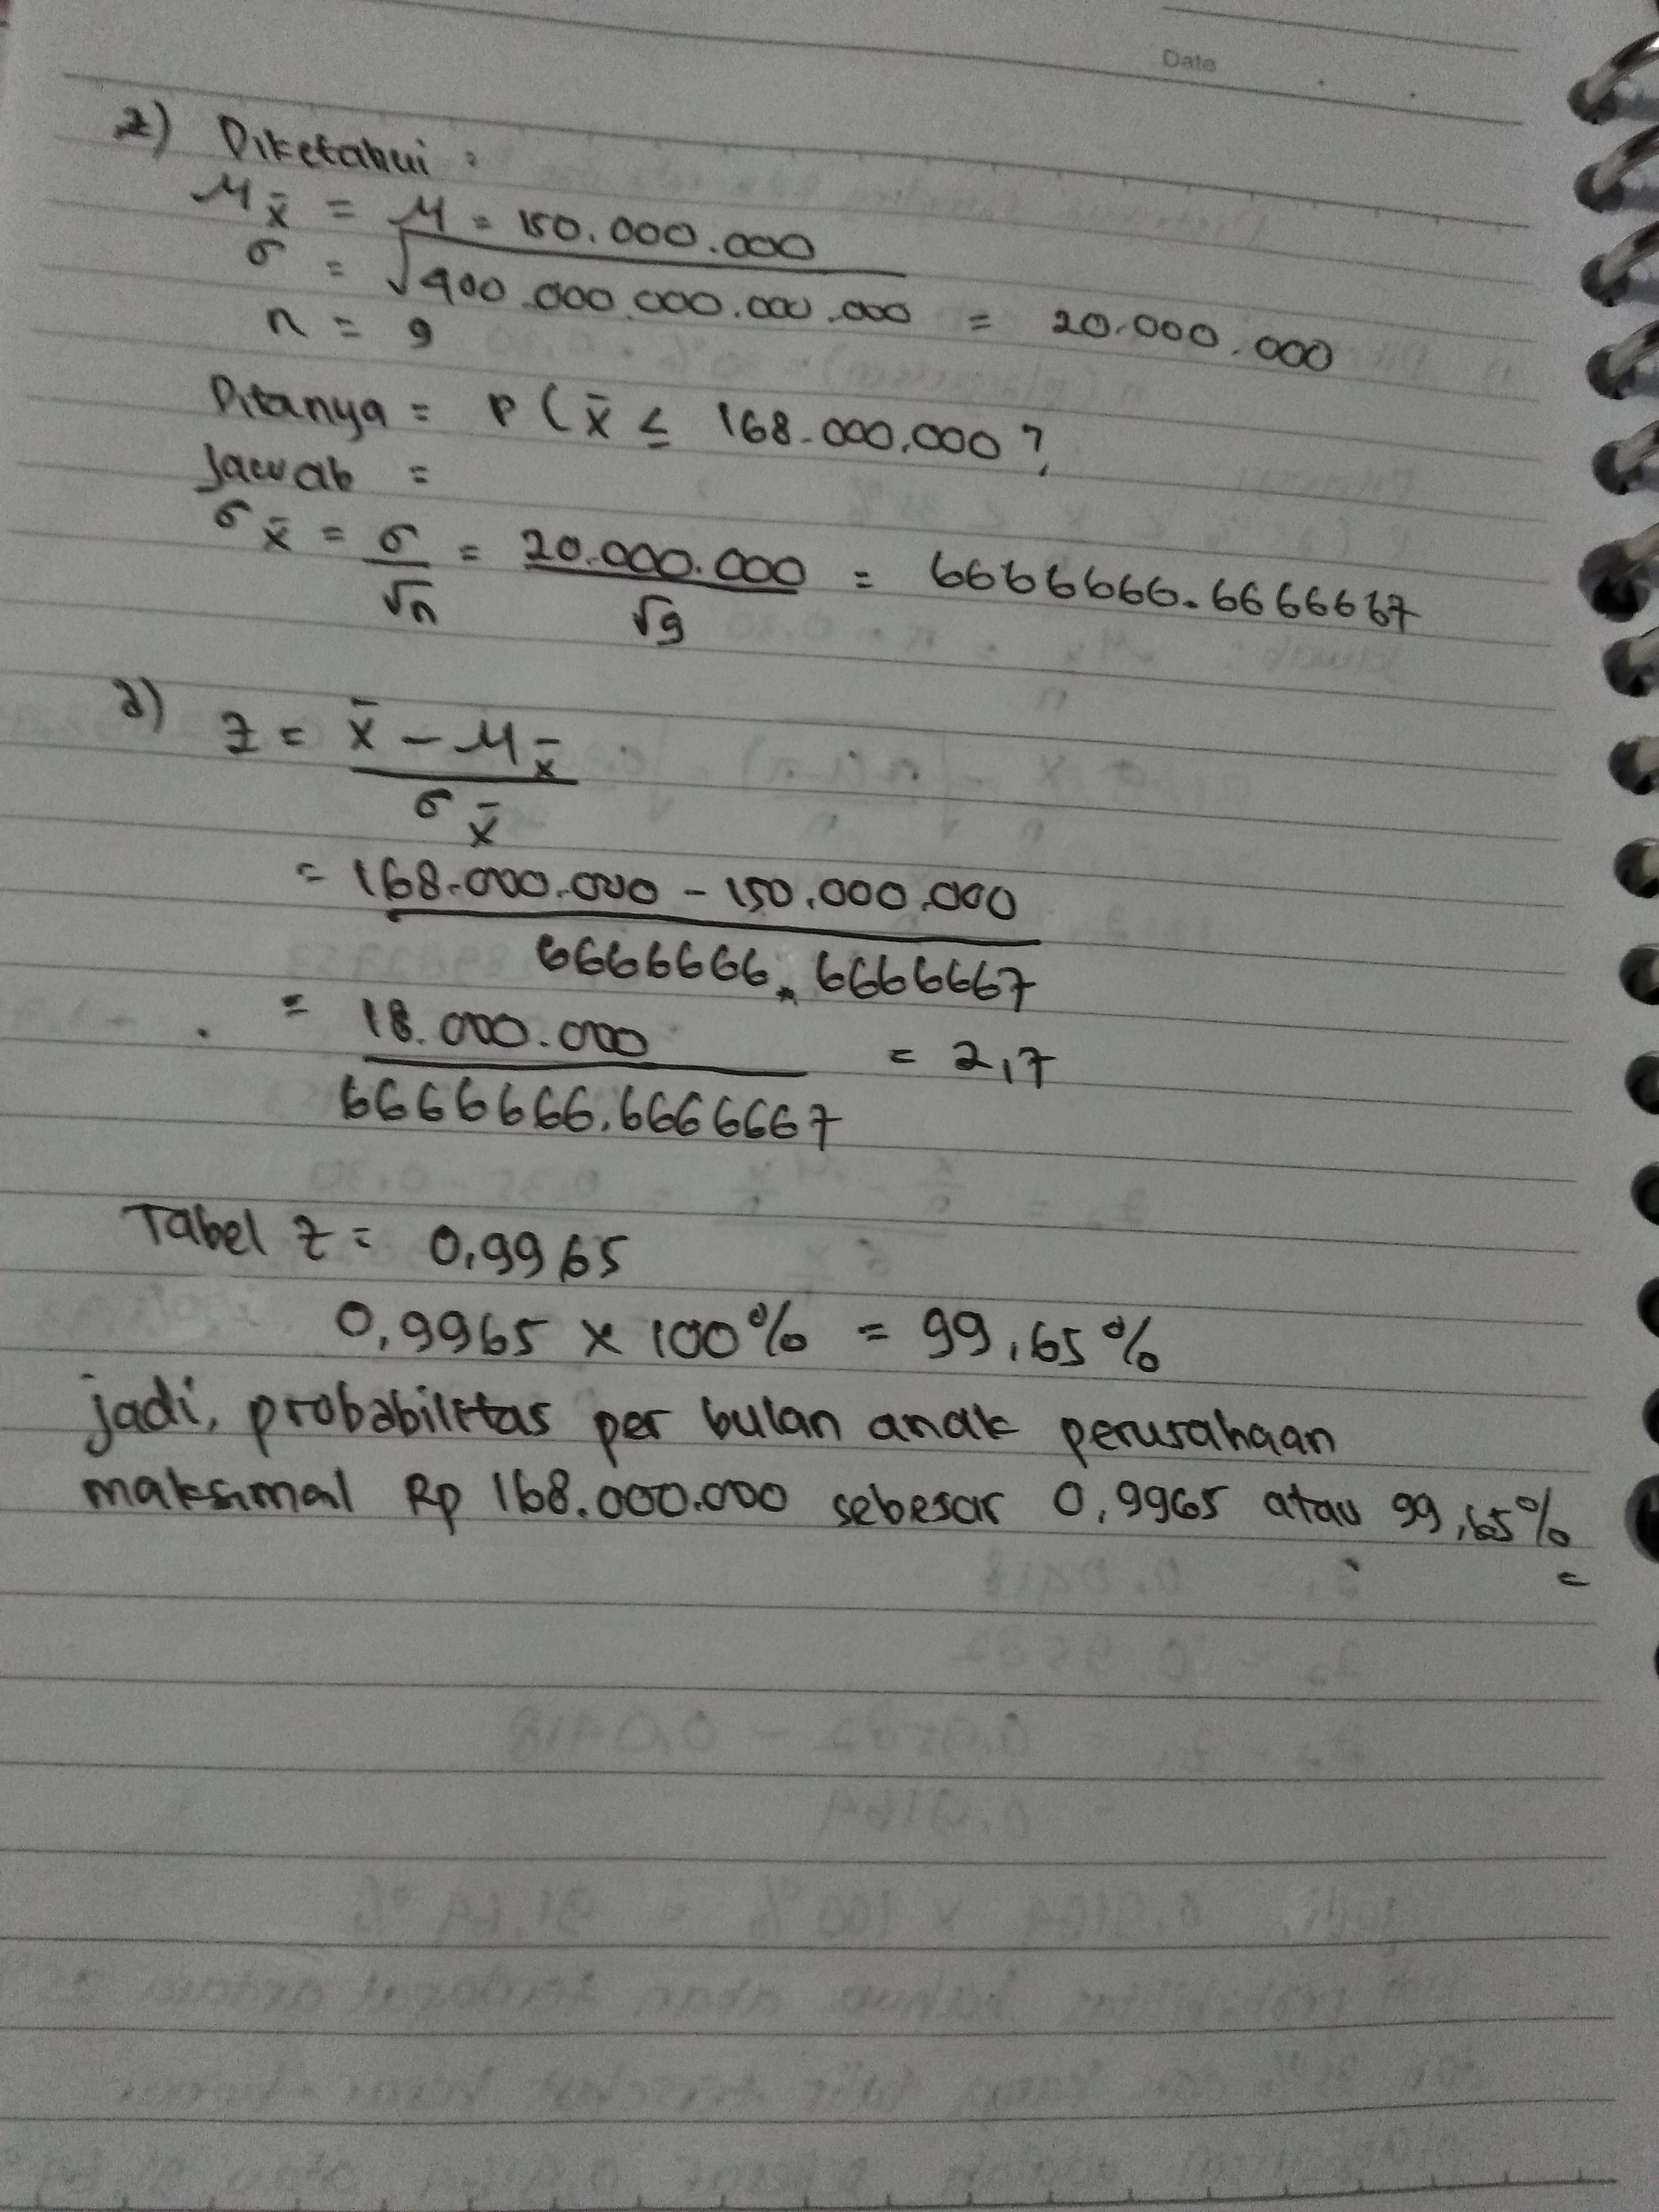 Date
2) Diketahui :
μx̄ = μ = 150.000.000
σ = √400.000.000.000.000 = 20.000.000
n = 9
Ditanya = P(x̄ ≤ 168.000.000?
Jawab =
σx̄ = σ/√n = 20.000.000/√9 = 6666666.6666667
2) z = x̄ - μx̄
σx̄
= 168.000.000 - 150.000.000
6666666.6666667
= 18.000.000 = 2,7
6666666.6666667
Tabel z = 0,9965
0,9965 x 100% = 99,65%
jadi, probabilitas per bulan anak perusahaan
maksimal Rp 168.000.000 sebesar 0,9965 atau 99,65%